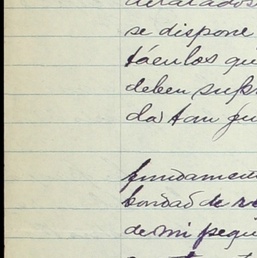 se dispone
táculos qu
deben sufr
da) tan ju
fundament
bondad de
de mi pequ